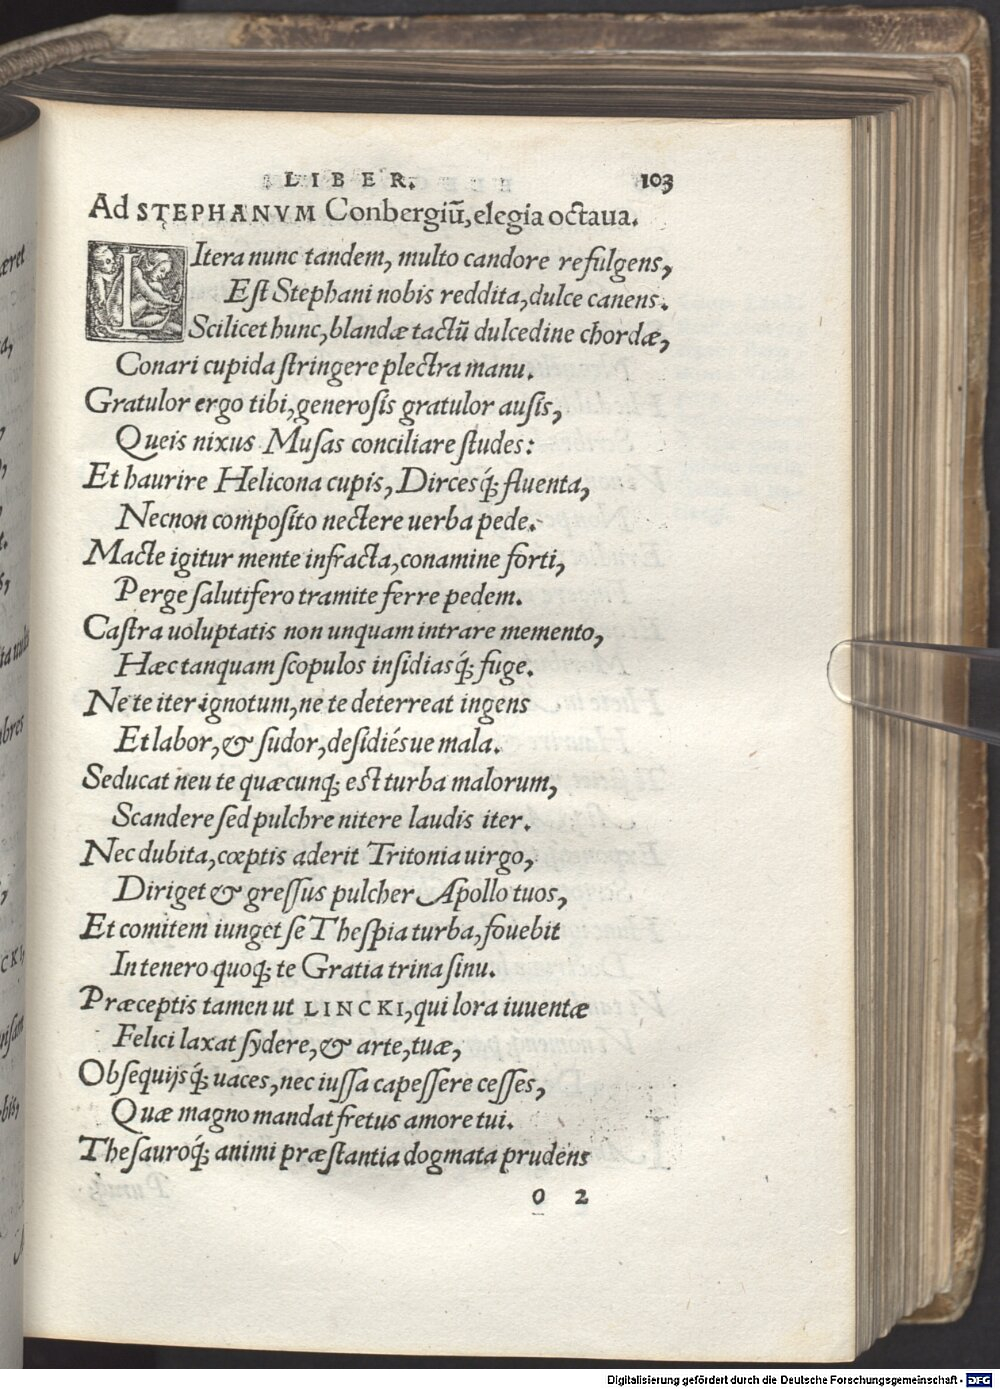 LIBER. 103
Ad STEPHANVM Conbergiū, elegia octaua.
LItera nunc tandem, multo candore refulgens,
Est Stephani nobis reddita, dulce canens.
Scilicet hunc, blandæ tactū dulcedine chordæ,
Conari cupida stringere plectra manu.
Gratulor ergo tibi, generosis gratulor ausis,
Queis nixus Musas conciliare studes:
Et haurire Helicona cupis, Dircesq́; fluenta,
Necnon composito nectere uerba pede.
Macte igitur mente infracta, conamine forti,
Perge salutifero tramite ferre pedem.
Castra uoluptatis non unquam intrare memento,
Hæc tanquam scopulos insidiasq́; fuge.
Ne te iter ignotum, ne te deterreat ingens
Et labor, & sudor, desidiésue mala.
Seducat neu te quæcunq; est turba malorum,
Scandere sed pulchre nitere laudis iter.
Nec dubita, cœptis aderit Tritonia uirgo,
Diriget & gressus pulcher Apollo tuos,
Et comitem iunget se Thespia turba, fouebit
In tenero quoq; te Gratia trina sinu.
Præceptis tamen ut LINCKI, qui lora iuuentæ
Felici laxat sydere, & arte, tuæ,
Obsequijsq́; uaces, nec iussa capessere cesses,
Quæ magno mandat fretus amore tui.
Thesauroq́; animi præstantia dogmata prudens
O 2
Digitalisierung gefördert durch die Deutsche Forschungsgemeinschaft - DFG